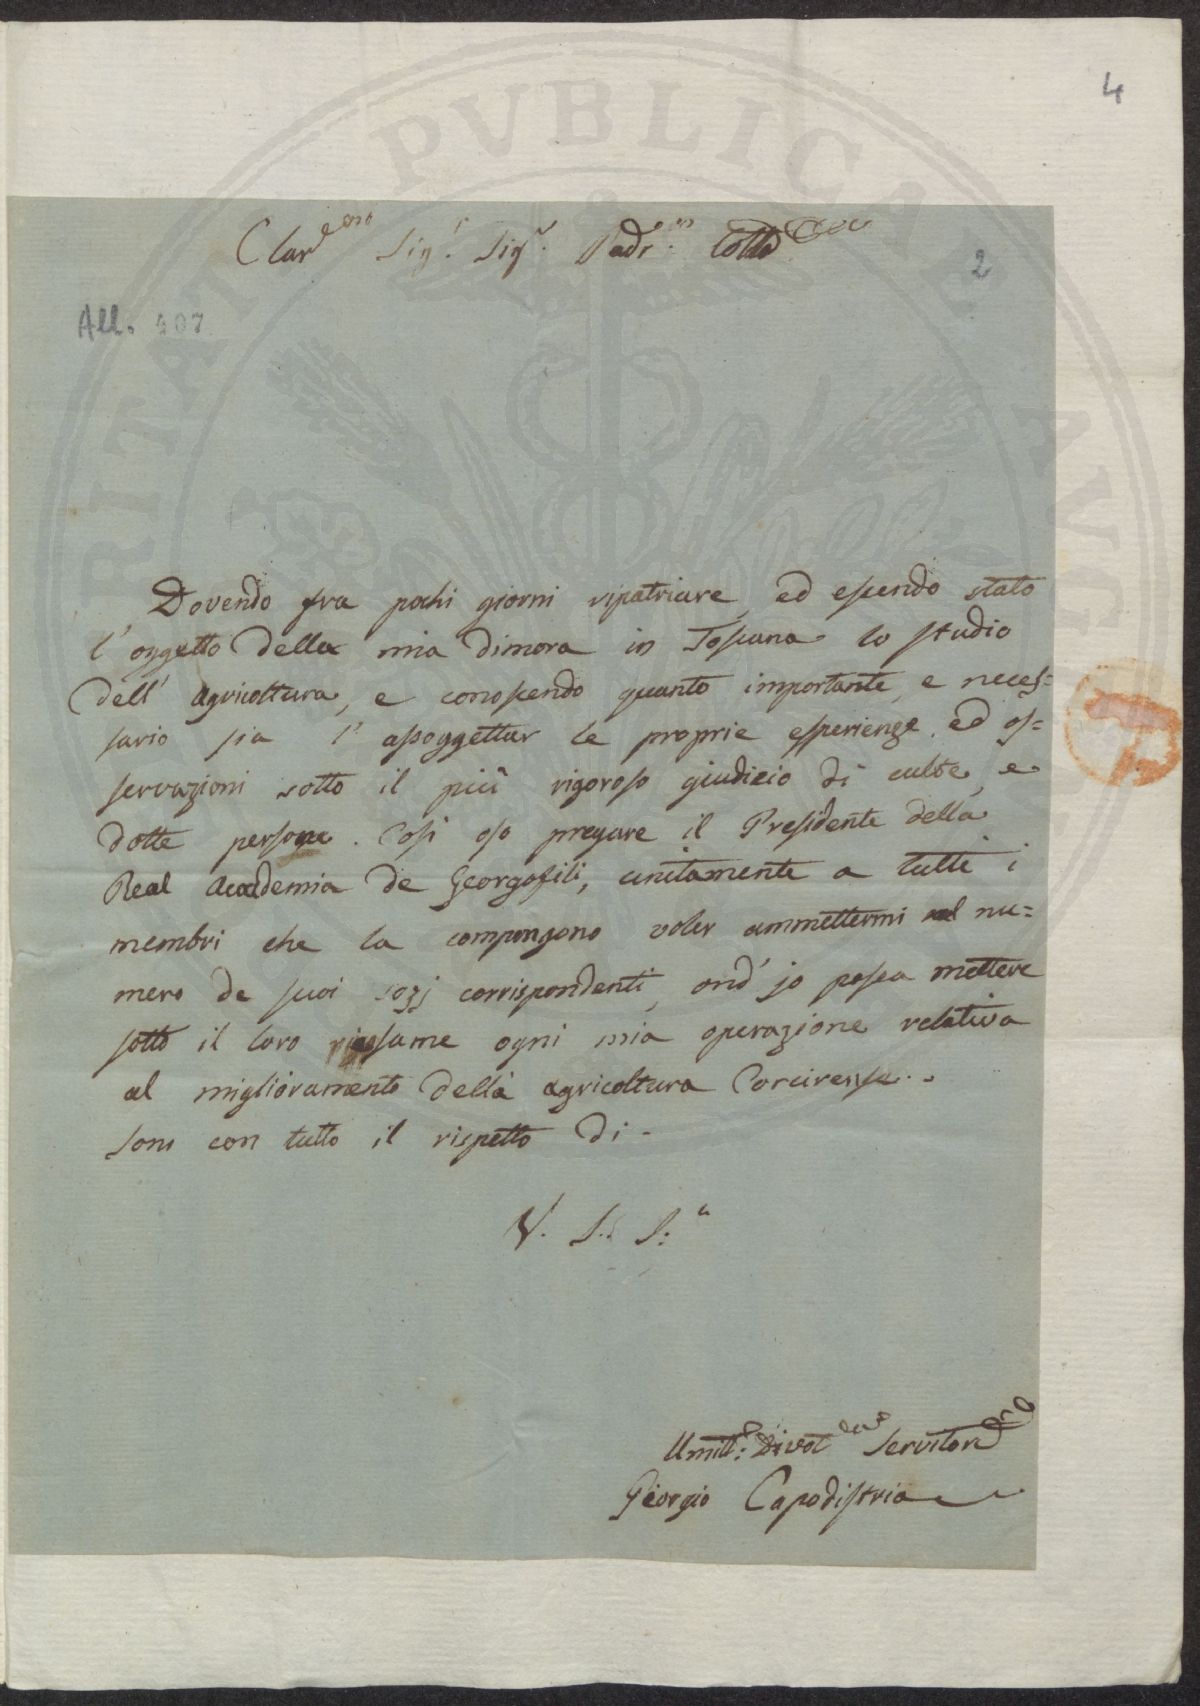 4
Clar.mo Sig.r Sig.r Padr.n Coll.o
2
All. 407
Dovendo fra pochi giorni ripatriare, ed essendo stato
l'oggetto della mia dimora in Toscana lo studio
dell' agricoltura, e conoscendo quanto importante, e neces=
sario sia l' assoggettar le proprie esperienze, ed os=
servazioni sotto il più rigoroso giudizio di culte, e
dotte persone. Così oso pregare il Presidente della
Real Accademia de Georgofili, unitamente a tutti i
membri che la compongono voler ammettermi nel nu=
mero de suoi sozj corrispondenti, ond' jo possa mettere
sotto il loro riessame ogni mia operazione relativa
al miglioramento della agricoltura Corcirense..
sono con tutto il rispetto di -
V. S. S:a
Umill: Divot Servitore
Giorgio Capodistria
PVBLICAE